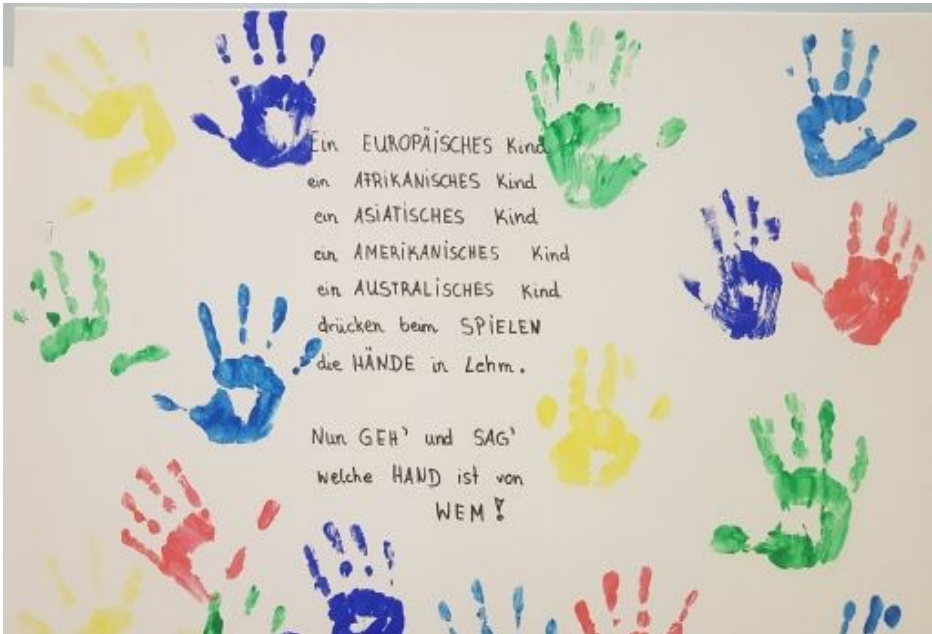 Ein EUROPÄISCHES Kind
ein AFRIKANISCHES Kind
ein ASIATISCHES Kind
ein AMERIKANISCHES Kind
ein AUSTRALISCHES Kind
drücken beim SPIELEN
die HÄNDE in Lehm.
Nun GEH' und SAG'
welche HAND ist von
WEM!